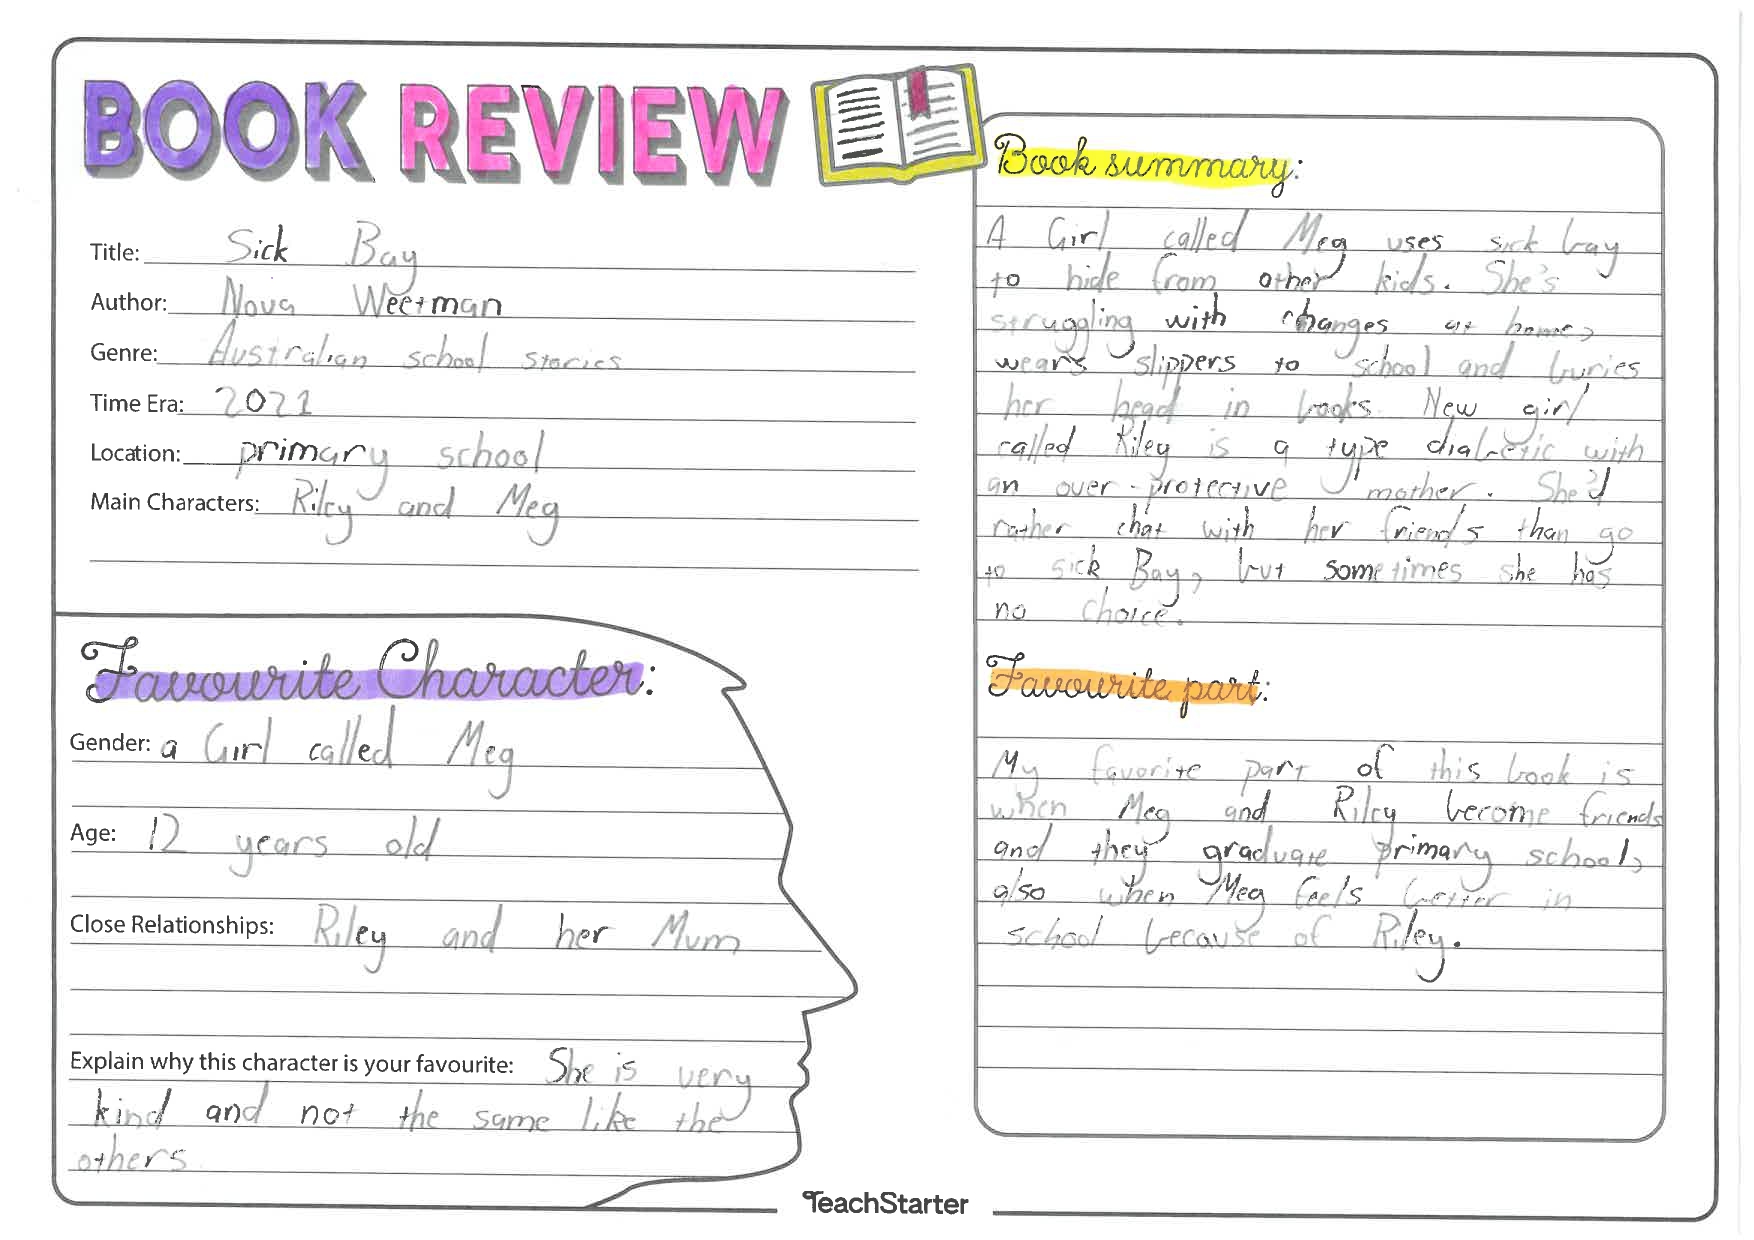 BOOK REVIEW
Title: Sick Bay
Author: Nova Weetman
Genre: Australian school stories
Time Era: 2021
Location: primary school
Main Characters: Riley and Meg
Favourite Character:
Gender: a Girl called Meg
Age: 12 years old
Close Relationships: Riley and her Mum
Explain why this character is your favourite: She is very
kind and not the same like the
others
Book summary:
A Girl called Meg uses sick bay
to hide from other kids. She's
struggling with changes at home,
wears slippers to school and buries
her head in books. New girl
called Riley is a type diabetic with
an over-protective mother. She'd
rather chat with her friends than go
to sick Bay, but sometimes she has
no choice.
Favourite part:
My favorite part of this book is
when Meg and Riley become friends
and they graduate primary school,
also when Meg feels better in
school because of Riley.
TeachStarter